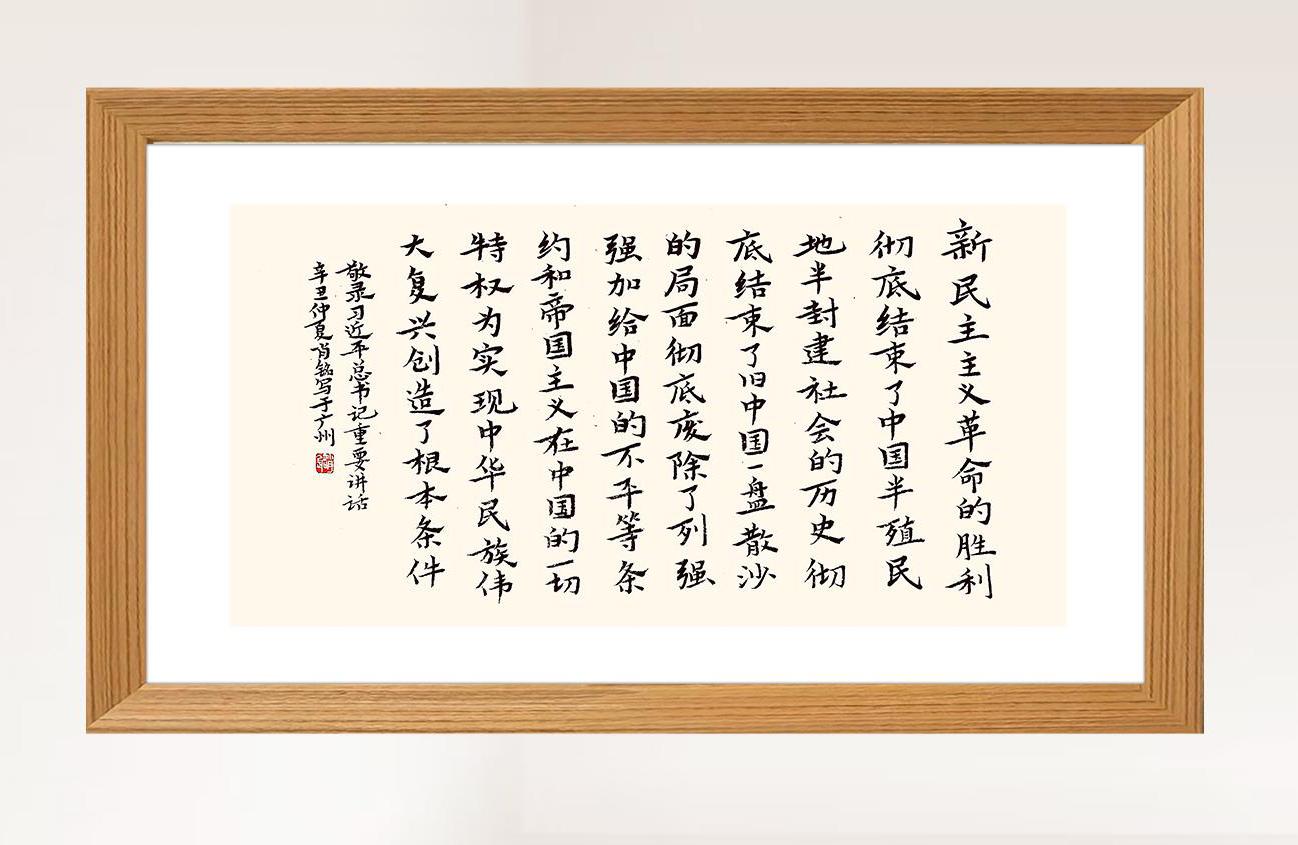 新民主主义革命的胜利
彻底结束了中国半殖民
地半封建社会的历史彻
底结束了旧中国一盘散沙
的局面彻底废除了列强
强加给中国的不平等条
约和帝国主义在中国的一切
特权为实现中华民族伟
大复兴创造了根本条件
敬录习近平总书记重要讲话
辛丑仲夏肖铭写于广州